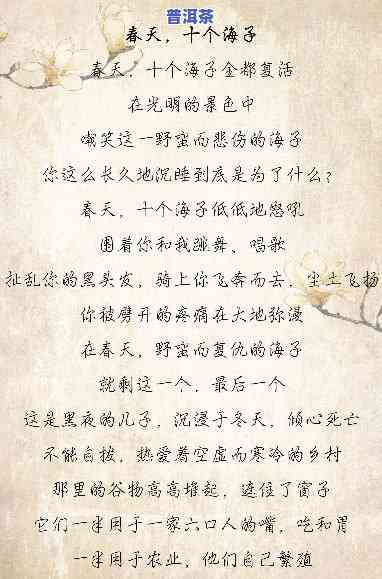 普洱茶
春天，十个海子
春天，十个海子全都复活
在光明的景色中
嘲笑这一野蛮而悲伤的海子
你这么长久地沉睡到底是为了什么？
春天，十个海子低低地怒吼
围着你和我跳舞、唱歌
扯乱你的黑头发，骑上你飞奔而去，尘土飞扬
你被劈开的疼痛在大地弥漫
在春天，野蛮而复仇的海子
就剩这一个，最后一个
这是黑夜的儿子，沉浸于冬天，倾心死亡
不能自拔，热爱着空虚而寒冷的乡村
那里的谷物高高堆起，遮住了窗子
它们一半用于一家六口人的嘴，吃和胃
一半用于农业，他们自己繁殖